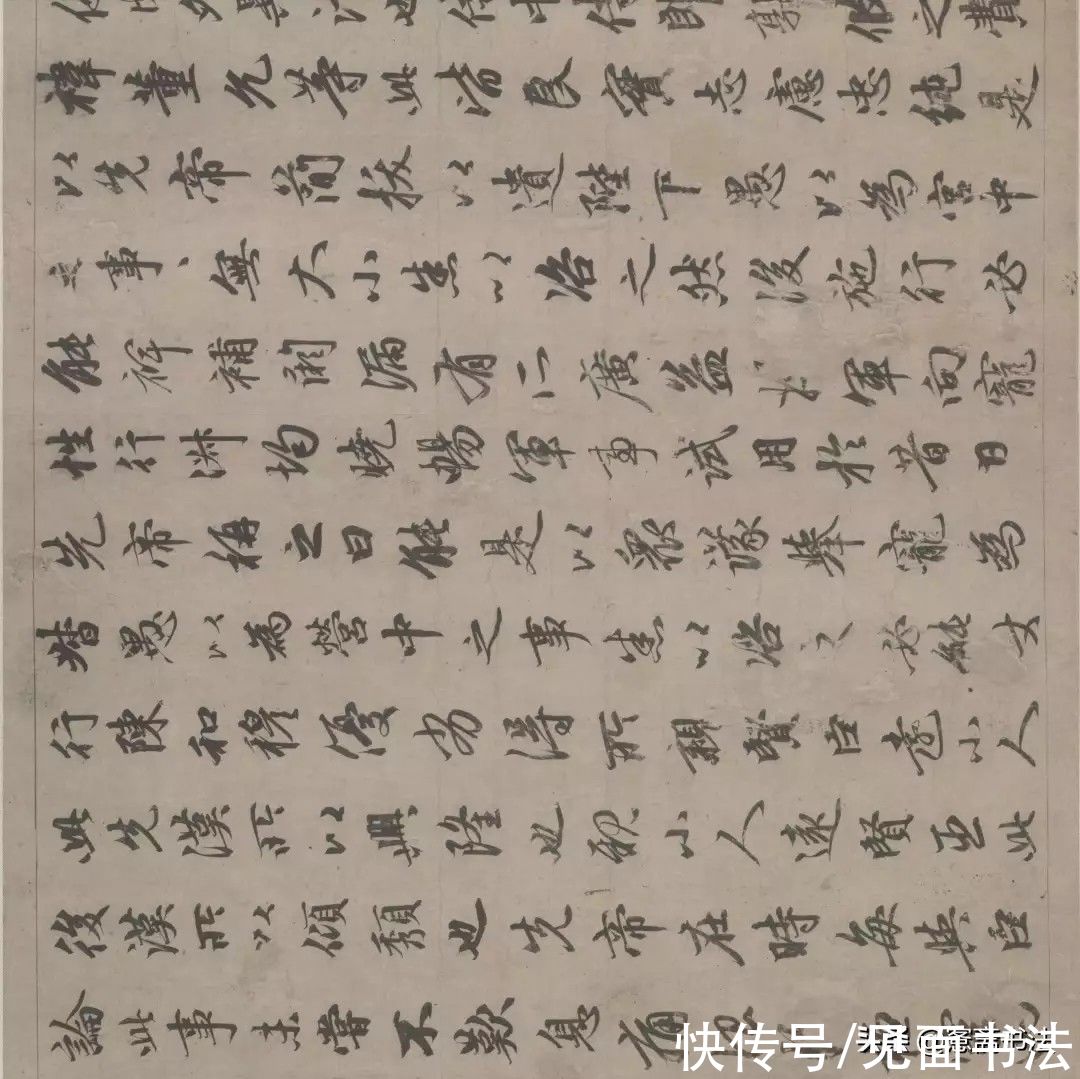 也侍中侍郎郭攸之費
禕董允等此皆良實志慮忠純是
以先帝簡拔以遺陛下愚以為宮中
之事、無大小悉以咨之然後施行必
能裨補闕漏有廣益軍向寵
性行淑均曉暢軍事試用於昔日
先帝稱之曰能是以眾議舉寵為
督愚以為營中之事悉以咨之必能
行陳和穆優劣得所親賢臣遠小人
此先漢所以興隆也親小人遠賢臣此
後漢所以傾頹也先帝在時每與臣
論此事未嘗不歎息痛
快传号/见面书法